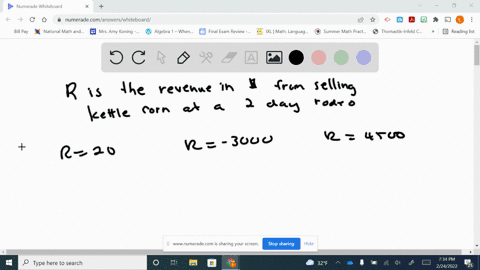 Numerade Whiteboard
numerade.com/answers/whiteboard/
Bill Pay
National Math and
Mrs. Amy Koning -
Algebra 1 – Whenev
Final Exam Review -
IXL | Math, Language
Summer Math Pract
Thomastik-Infeld C
Reading list
R is the revenue in $ from selling
kettle corn at a 2 day rodeo
R = 20
R = -3000
R = 4500
www.numerade.com is sharing your screen.
Stop sharing
Hide
Type here to search
32°F
7:34 PM
2/24/2022